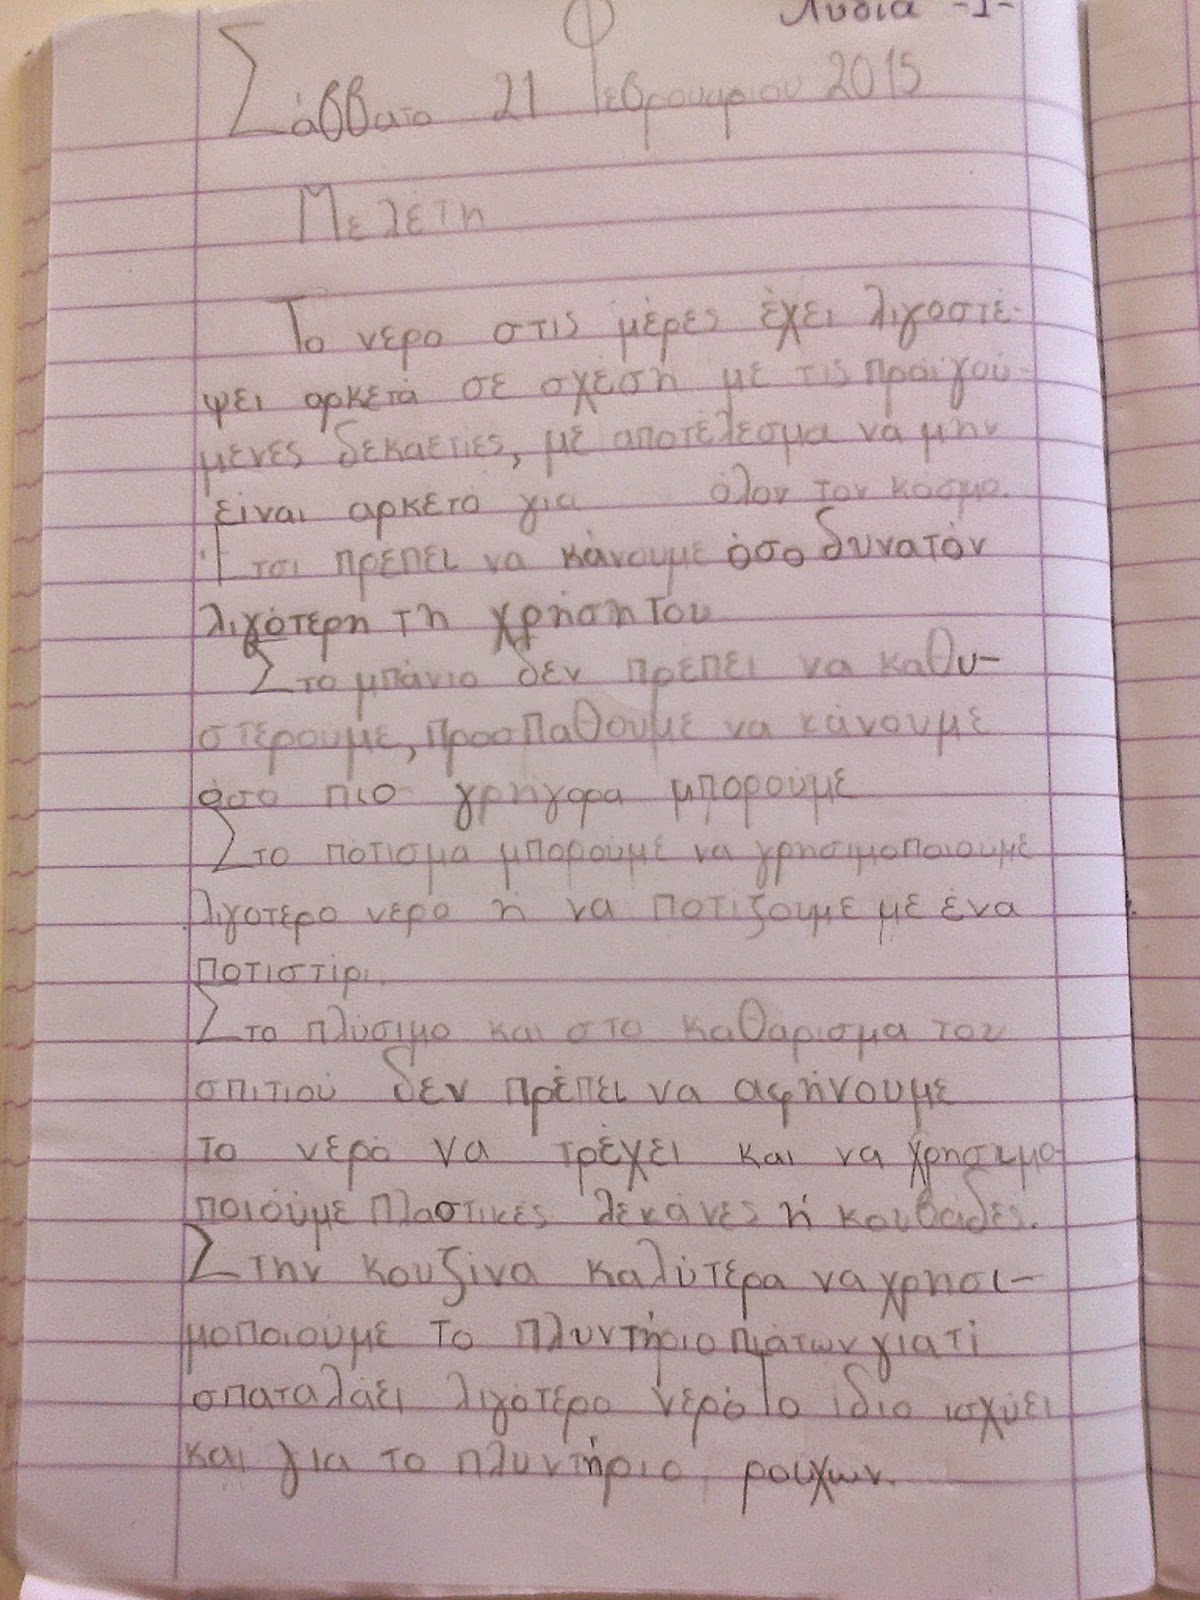 Λυδία -1-
Σάββατο 21 Φεβρουαρίου 2015
Μελέτη
Το νερό στις μέρες έχει λιγοστέ-
ψει αρκετά σε σχέση με τις προιγού-
μενες δεκαετίες, με αποτέλεσμα να μην
είναι αρκετό για όλον τον κόσμο.
Έτσι πρέπει να κάνουμε όσο δυνατόν
λιγότερη τη χρήση του
Στο μπάνιο δεν πρέπει να καθυ-
στερούμε, προσπαθούμε να κάνουμε
όσο πιο γρήγορα μπορούμε
Στο πότισμα μπορούμε να χρησιμοποιούμε
λιγότερο νερό ή να ποτίζουμε με ένα
ποτιστίρι.
Στο πλύσιμο και στο καθάρισμα του
σπιτιού δεν πρέπει να αφήνουμε
το νερό να τρέχει και να χρησιμο-
ποιούμε πλαστικές λεκάνες ή κουβάδες.
Στην κουζίνα καλύτερα να χρησι-
μοποιούμε το πλυντήριο πιάτων γιατί
σπαταλάει λιγότερο νερό Το ίδιο ισχύει
και για το πλυντήριο ρούχων.